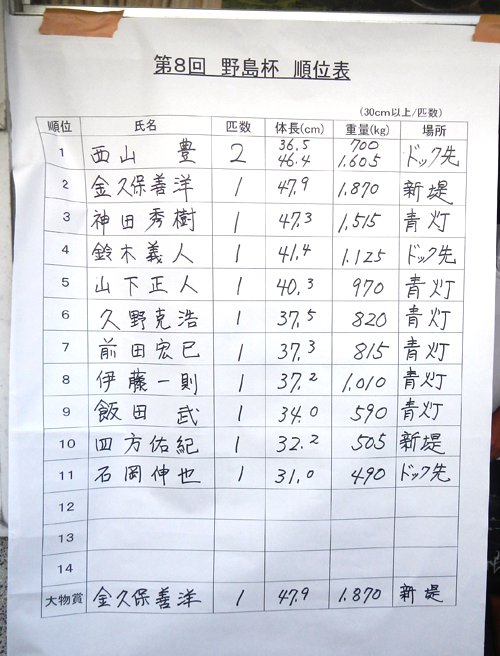 第8回 野島杯 順位表
(30cm以上/匹数)
順位 氏名 匹数 体長(cm) 重量(kg) 場所
1 西山 豊 2 36.5 46.4 700 1.605 ドック先
2 金久保善洋 1 47.9 1.870 新堤
3 神田秀樹 1 47.3 1.515 青灯
4 鈴木義人 1 41.4 1.125 ドック先
5 山下正人 1 40.3 970 青灯
6 久野克浩 1 37.5 820 青灯
7 前田宏已 1 37.3 815 青灯
8 伊藤一則 1 37.2 1.010 青灯
9 飯田 武 1 34.0 590 青灯
10 四方佑紀 1 32.2 505 新堤
11 石岡伸也 1 31.0 490 ドック先
12
13
14
大物賞 金久保善洋 1 47.9 1.870 新堤